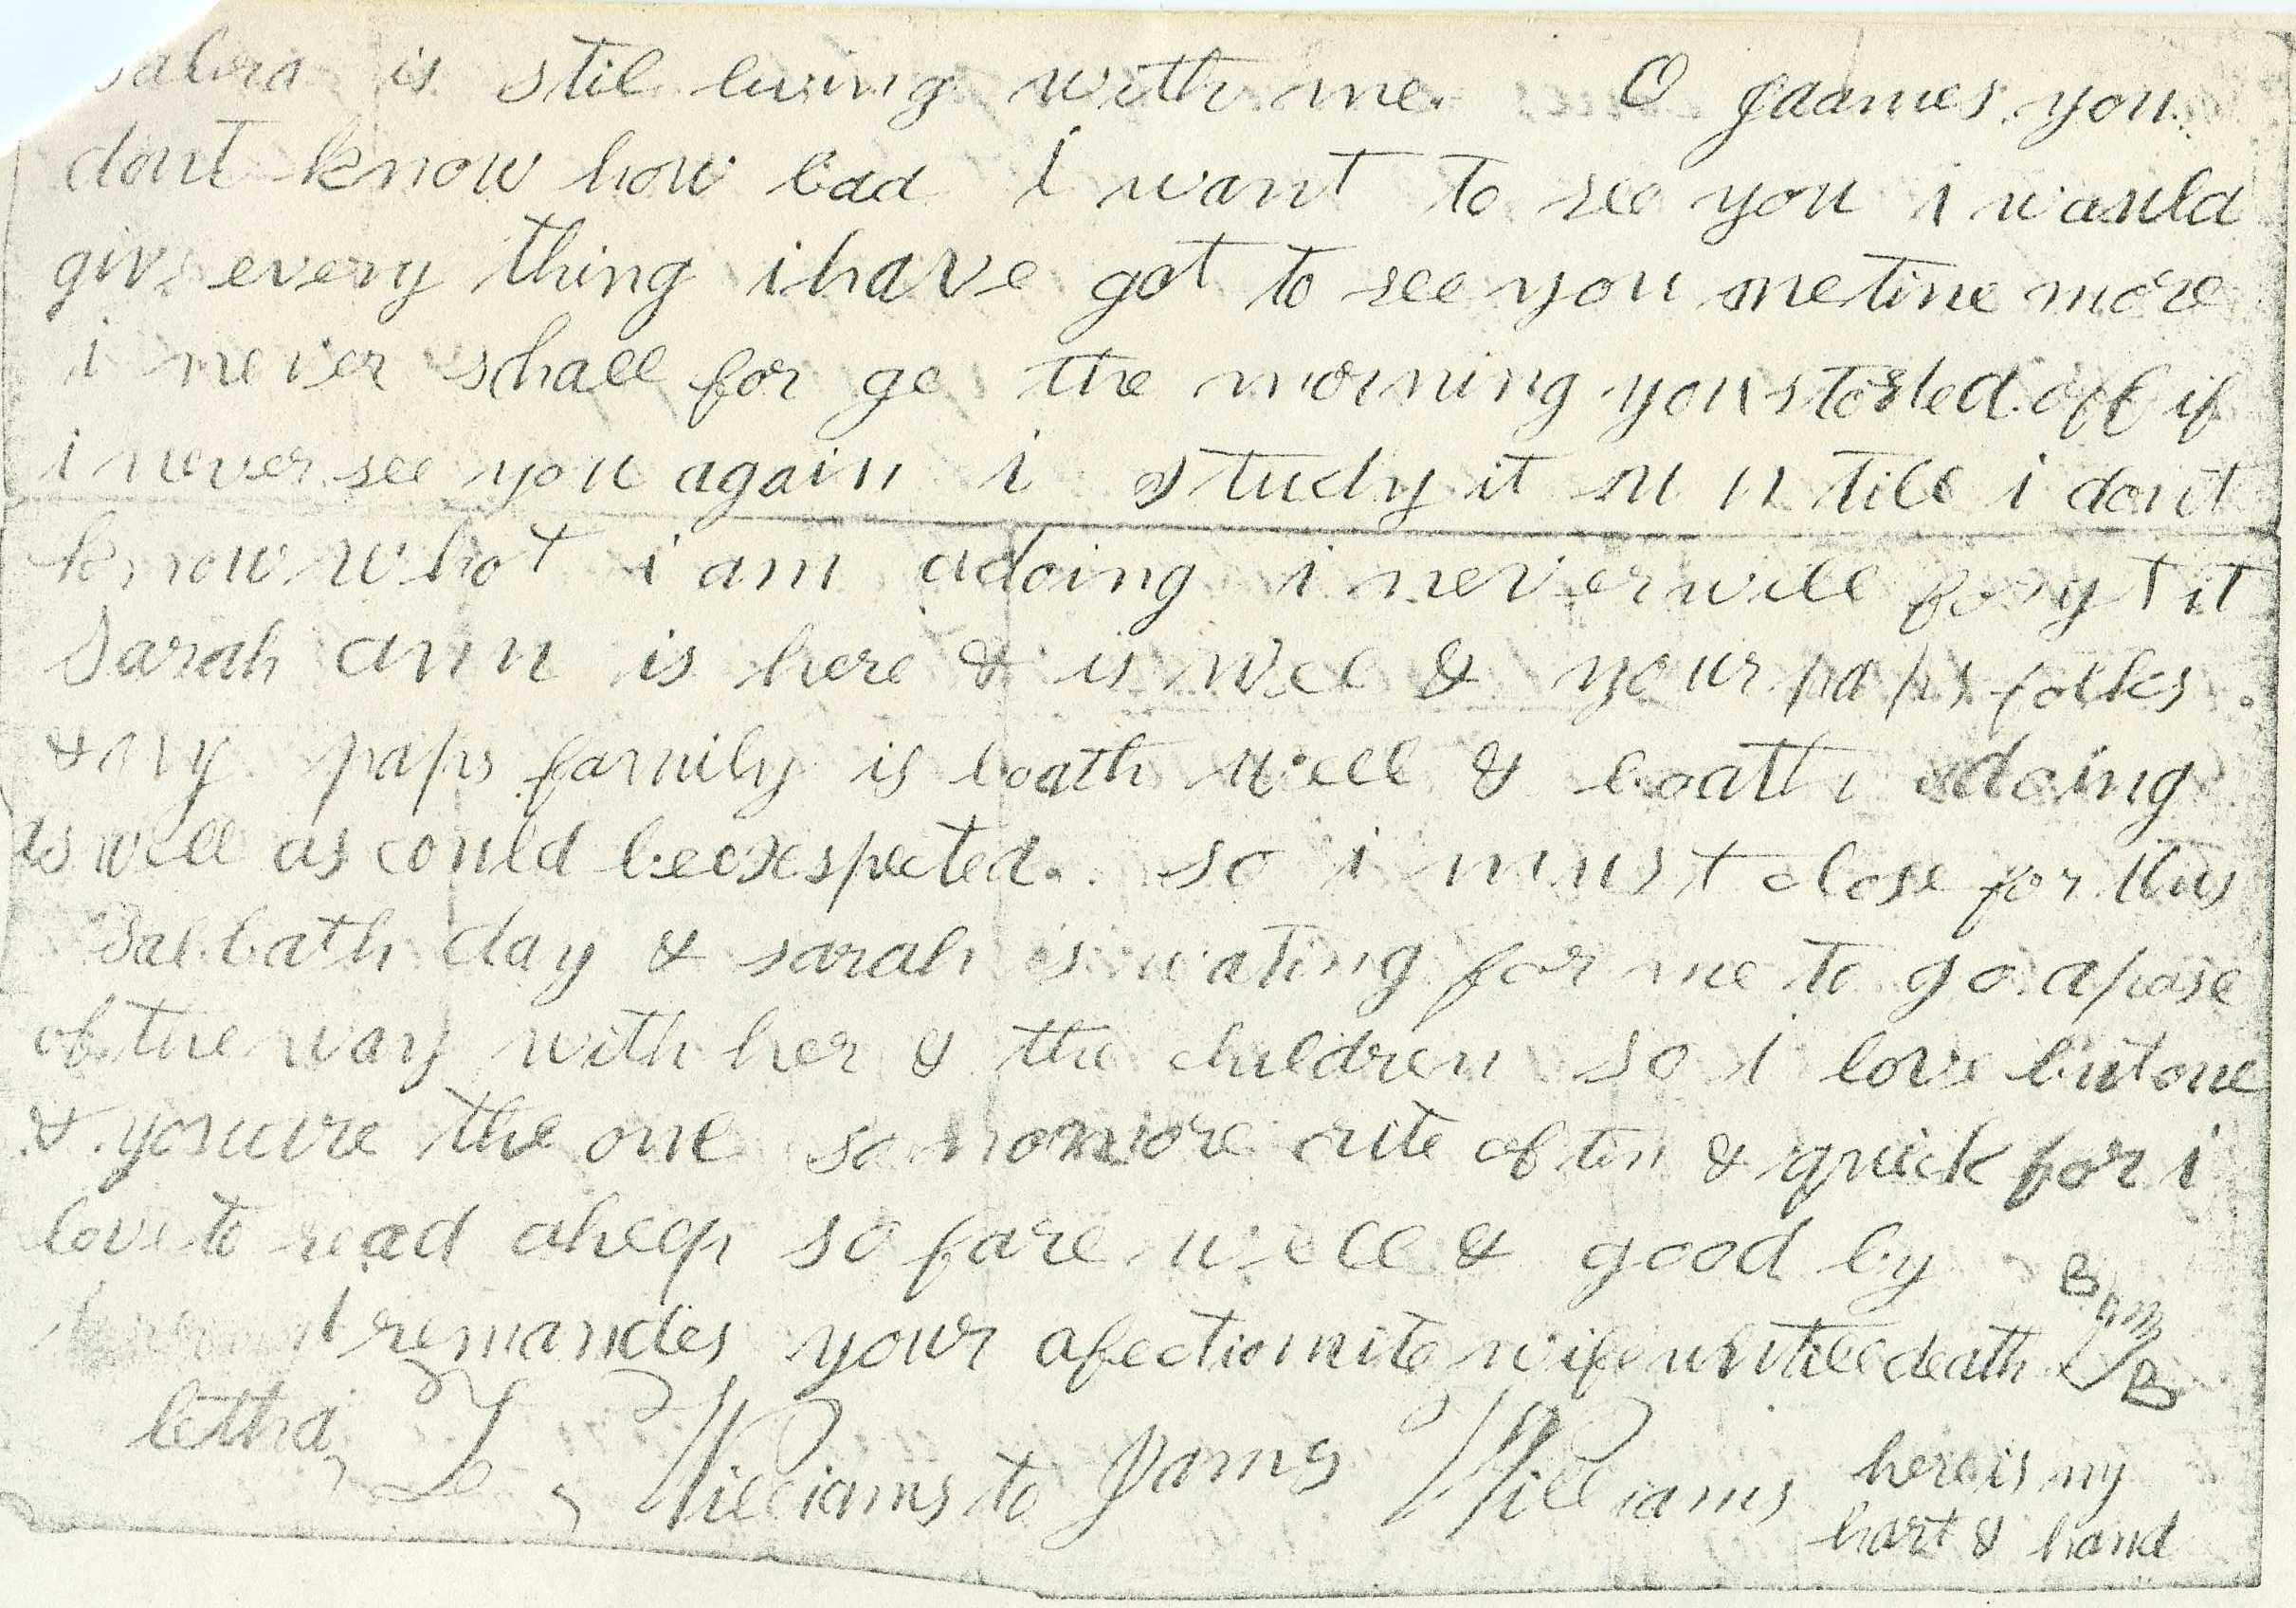 is stil living with me. O Jaames you
dont know how bad I want to see you i would
give every thing i have got to see you one time more
i never shall for ge the morning you storted off if
i never see you again i study it on until i dont
know whot i am adoing i never will forgt it
Sarah ann is here & is well & your paps folks
& my paps family is boath well & boath adoing
as well as could be exspected. so i must close for this
Sabbath day & sarah is wating for me to go a pase
of the way with her & the children so I love but one
& you are the one so no more rite often & quick for i
love to read aheep so fare well & good by
remandes your afectionite wife untill death
letha L Williams to James Williams here is my
hart & hand